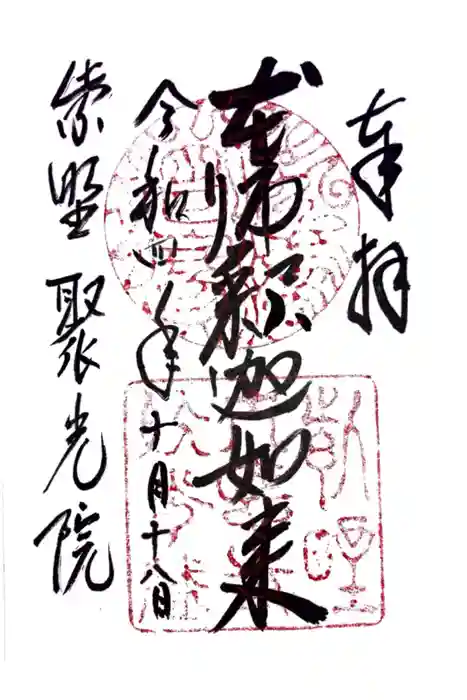 奉拝
本師釈迦如来
令和四年十月十八日
紫野 聚光院